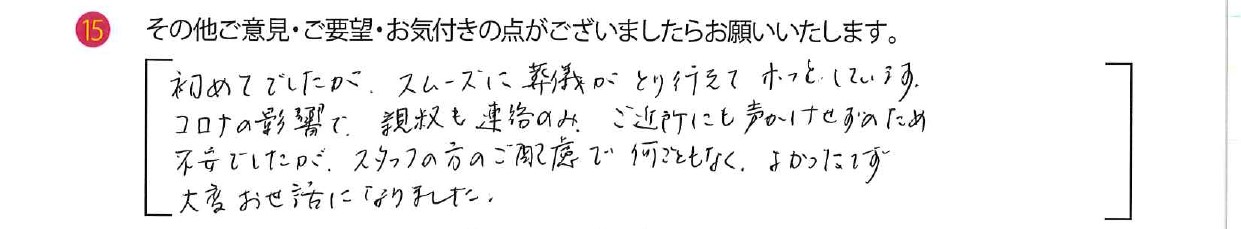 15 その他ご意見・ご要望・お気付きの点がございましたらお願いいたします。
初めてでしたが、スムーズに葬儀がとり行えてホッとしています。
コロナの影響で、親叔も連絡のみ、ご近所にも声かけせずのため
不安でしたが、スタッフの方のご配慮で何ごともなく、よかったです
大変お世話になりました。